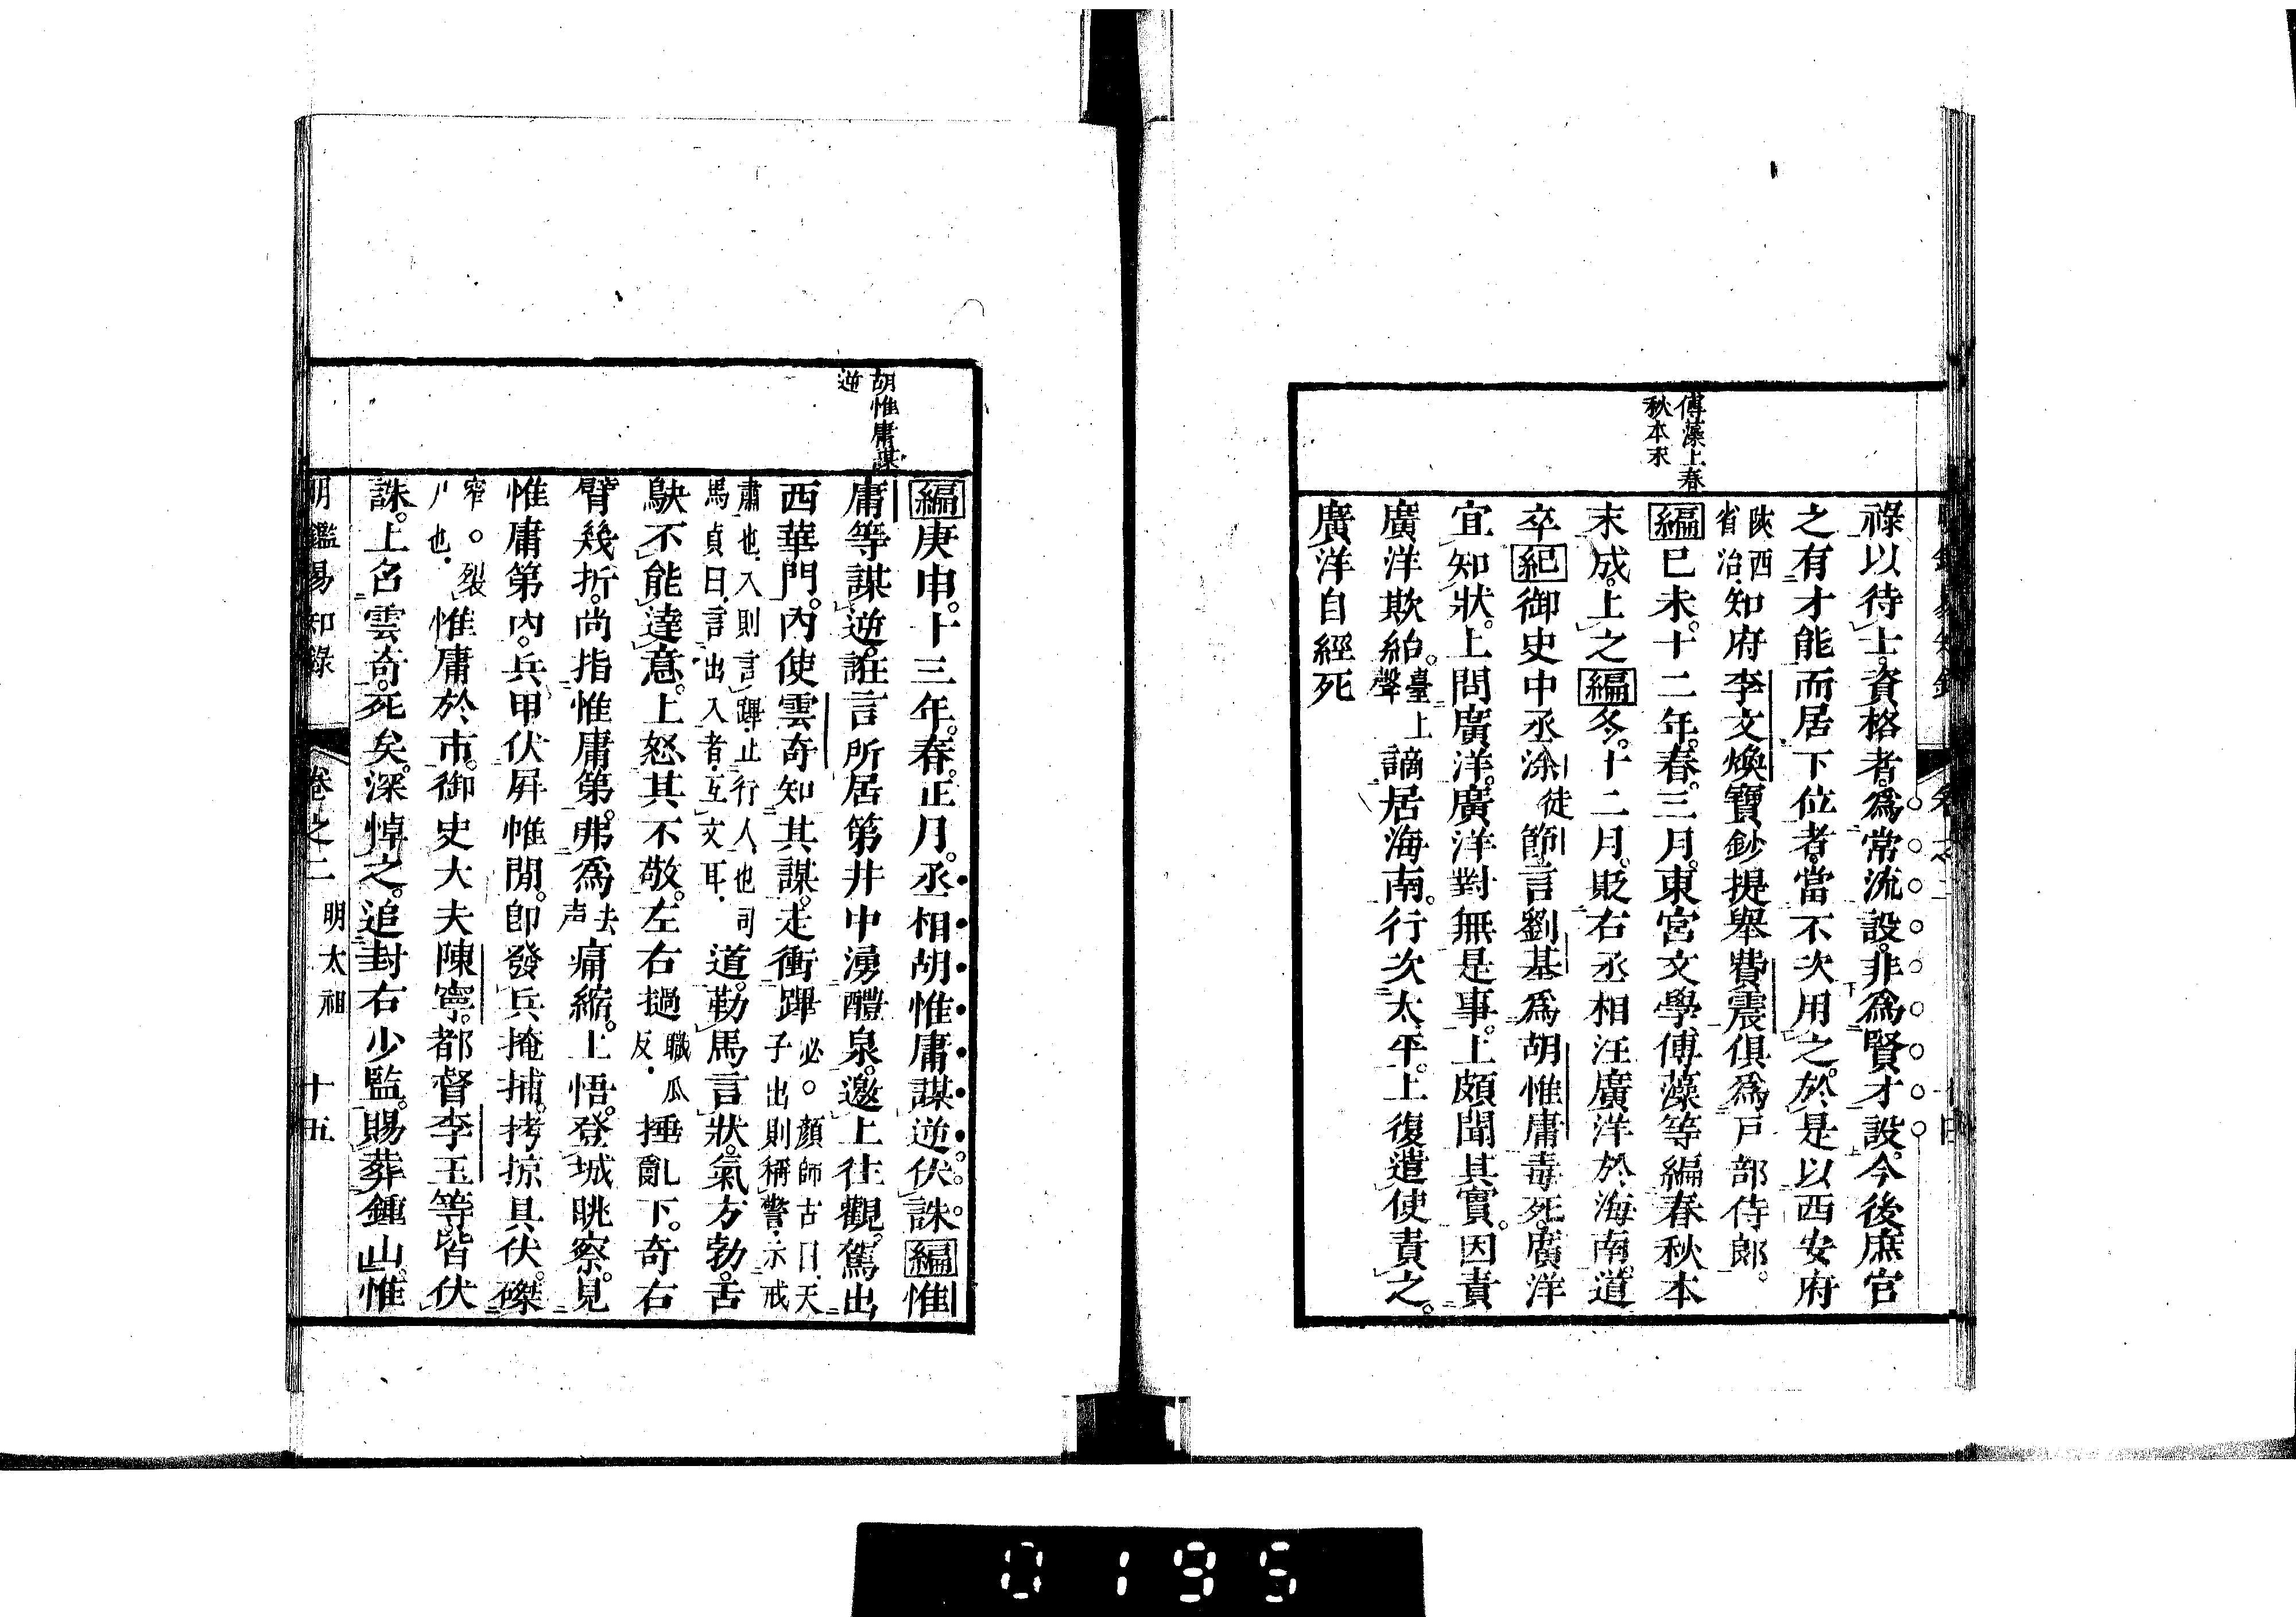 傅藻上春
秋本末
祿以待士。資格者。爲常流設。非爲賢才設。今後庶官
之有才能而居下位者。當不次用之。於是以西安府
陝西
省治。
知府李文煥寶鈔提舉費震俱爲戸部侍郎。
編已未。十二年。春。三月。東宮文學傅藻等編春秋本
末成。上之編冬。十二月。貶右丞相汪廣洋於海南。道
卒紀御史中丞涂徒節言劉基爲胡惟庸毒死。廣洋
宜知狀。上問廣洋。廣洋對無是事。上頗聞其實。因責
廣洋欺紿。臺上
聲
謫居海南。行次太平。上復遣使責之。
廣洋自經死
胡惟庸謀
逆
編庚申。十三年。春。正月。丞相胡惟庸謀逆。伏誅。編惟
庸等謀逆。誑言所居第井中湧醴泉。邀上往觀。駕出
西華門。內使雲奇知其謀。走衝蹕
必。顏師古曰、天
子出則稱警、示戒
肅也、入則言蹕、止行人也司
馬貞曰、言出入者、互文耳、
道。勒馬言狀。氣方勃。舌
駃不能達意。上怒其不敬。左右撾
職瓜
反、
捶亂下。奇右
臂幾折。尚指惟庸第。弗爲
去
声
痛縮。上悟。登城眺察。見
惟庸第內。兵甲伏屛帷閒。卽發兵掩捕。拷掠具伏。磔
窄。裂
也、
惟庸於市。御史大夫陳寧。都督李玉等。皆伏
誅。上召雲奇。死矣。深悼之。追封右少監。賜葬鍾山。惟
明鑑易知錄 卷之二 明太祖 十五
0195